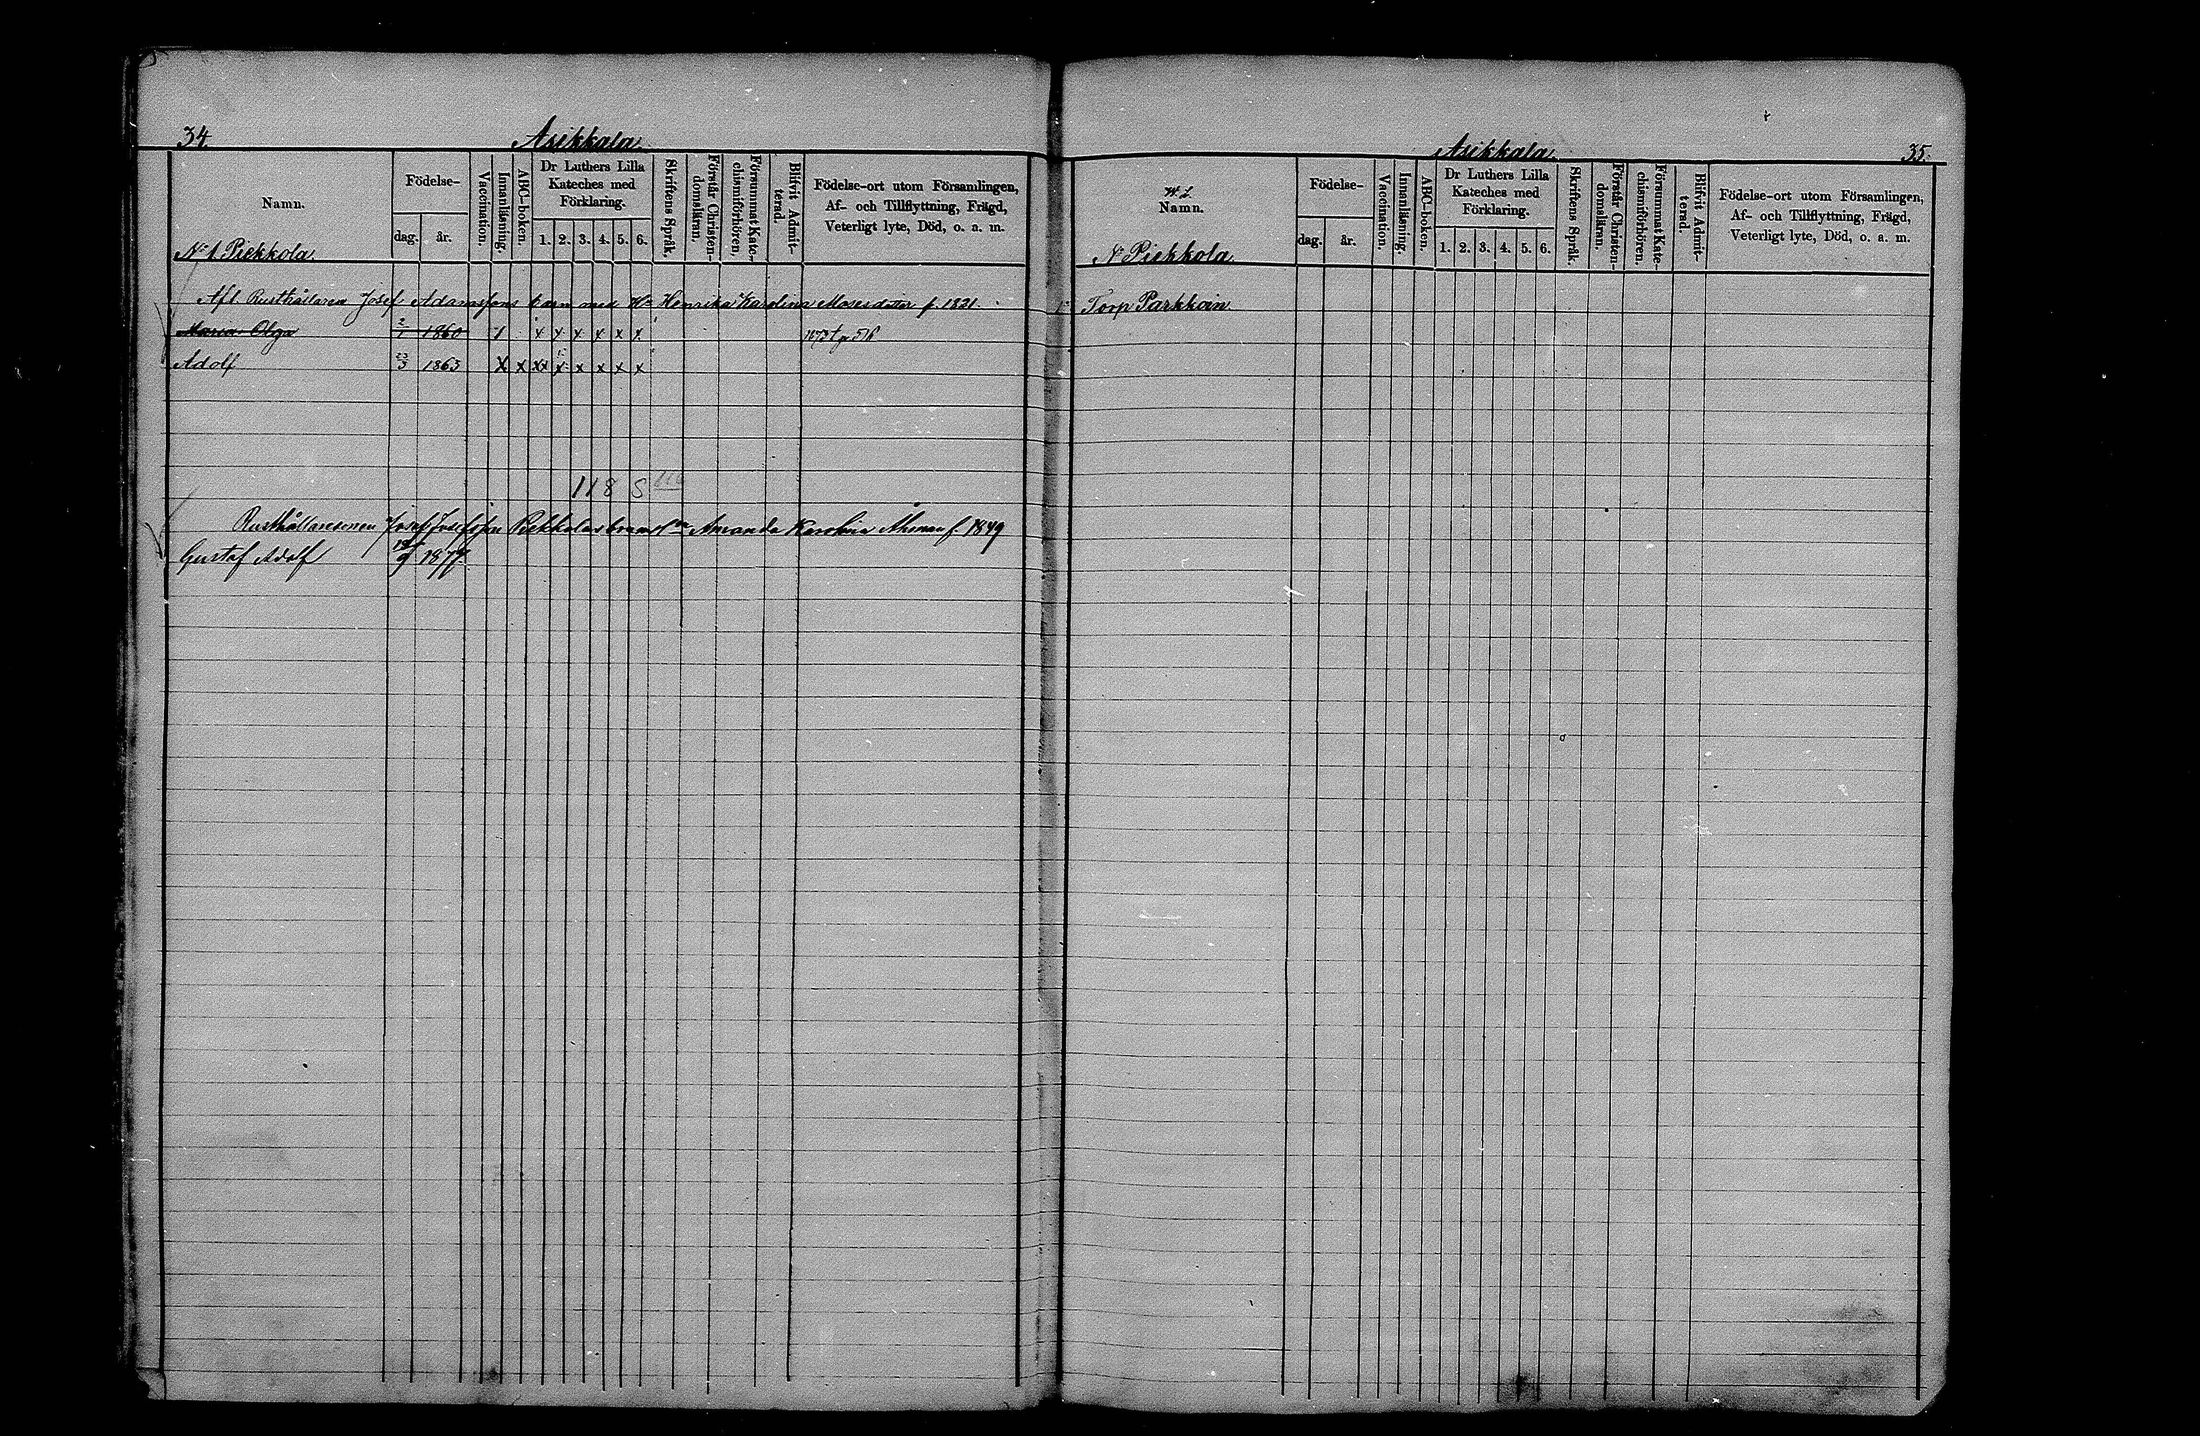 34.
Asikkala
Namn.
Födelse-
dag. år.
Vaccination.
Innanläsning.
ABC-boken.
Dr Luthers Lilla
Kateches med
Förklaring.
1. 2. 3. 4. 5. 6.
Skriftens Språk.
Förstår Christen-
domsläran.
Försummat Kate-
chismiförhören.
Blifvit Admit-
terad.
Födelse-ort utom Församlingen,
Af- och Tillflyttning, Frägd,
Veterligt lyte, Död, o. a. m.
No 1 Piekkola
Afl. Rusthållaren Josef Adamssons barn med Hu Henrika Karolina Mosesdotter f. 1821.
Maria Olga 2/1 1860 1 x x x x x x
Adolf 23/3 1863 x x xx x x x x x
118 S 116
Rusthållaresonen Josef Josefsson Amanda Karolina f. 1849
Gustaf Adolf 1877.
Asikkala
35.
Namn.
Födelse-
dag. år.
Vaccination.
Innanläsning.
ABC-boken.
Dr Luthers Lilla
Kateches med
Förklaring.
1. 2. 3. 4. 5. 6.
Skriftens Språk.
Förstår Christen-
domsläran.
Försummat Kate-
chismiförhören.
Blifvit Admit-
terad.
Födelse-ort utom Församlingen,
Af- och Tillflyttning, Frägd,
Veterligt lyte, Död, o. a. m.
No Piekkola
Torp Parkkoin